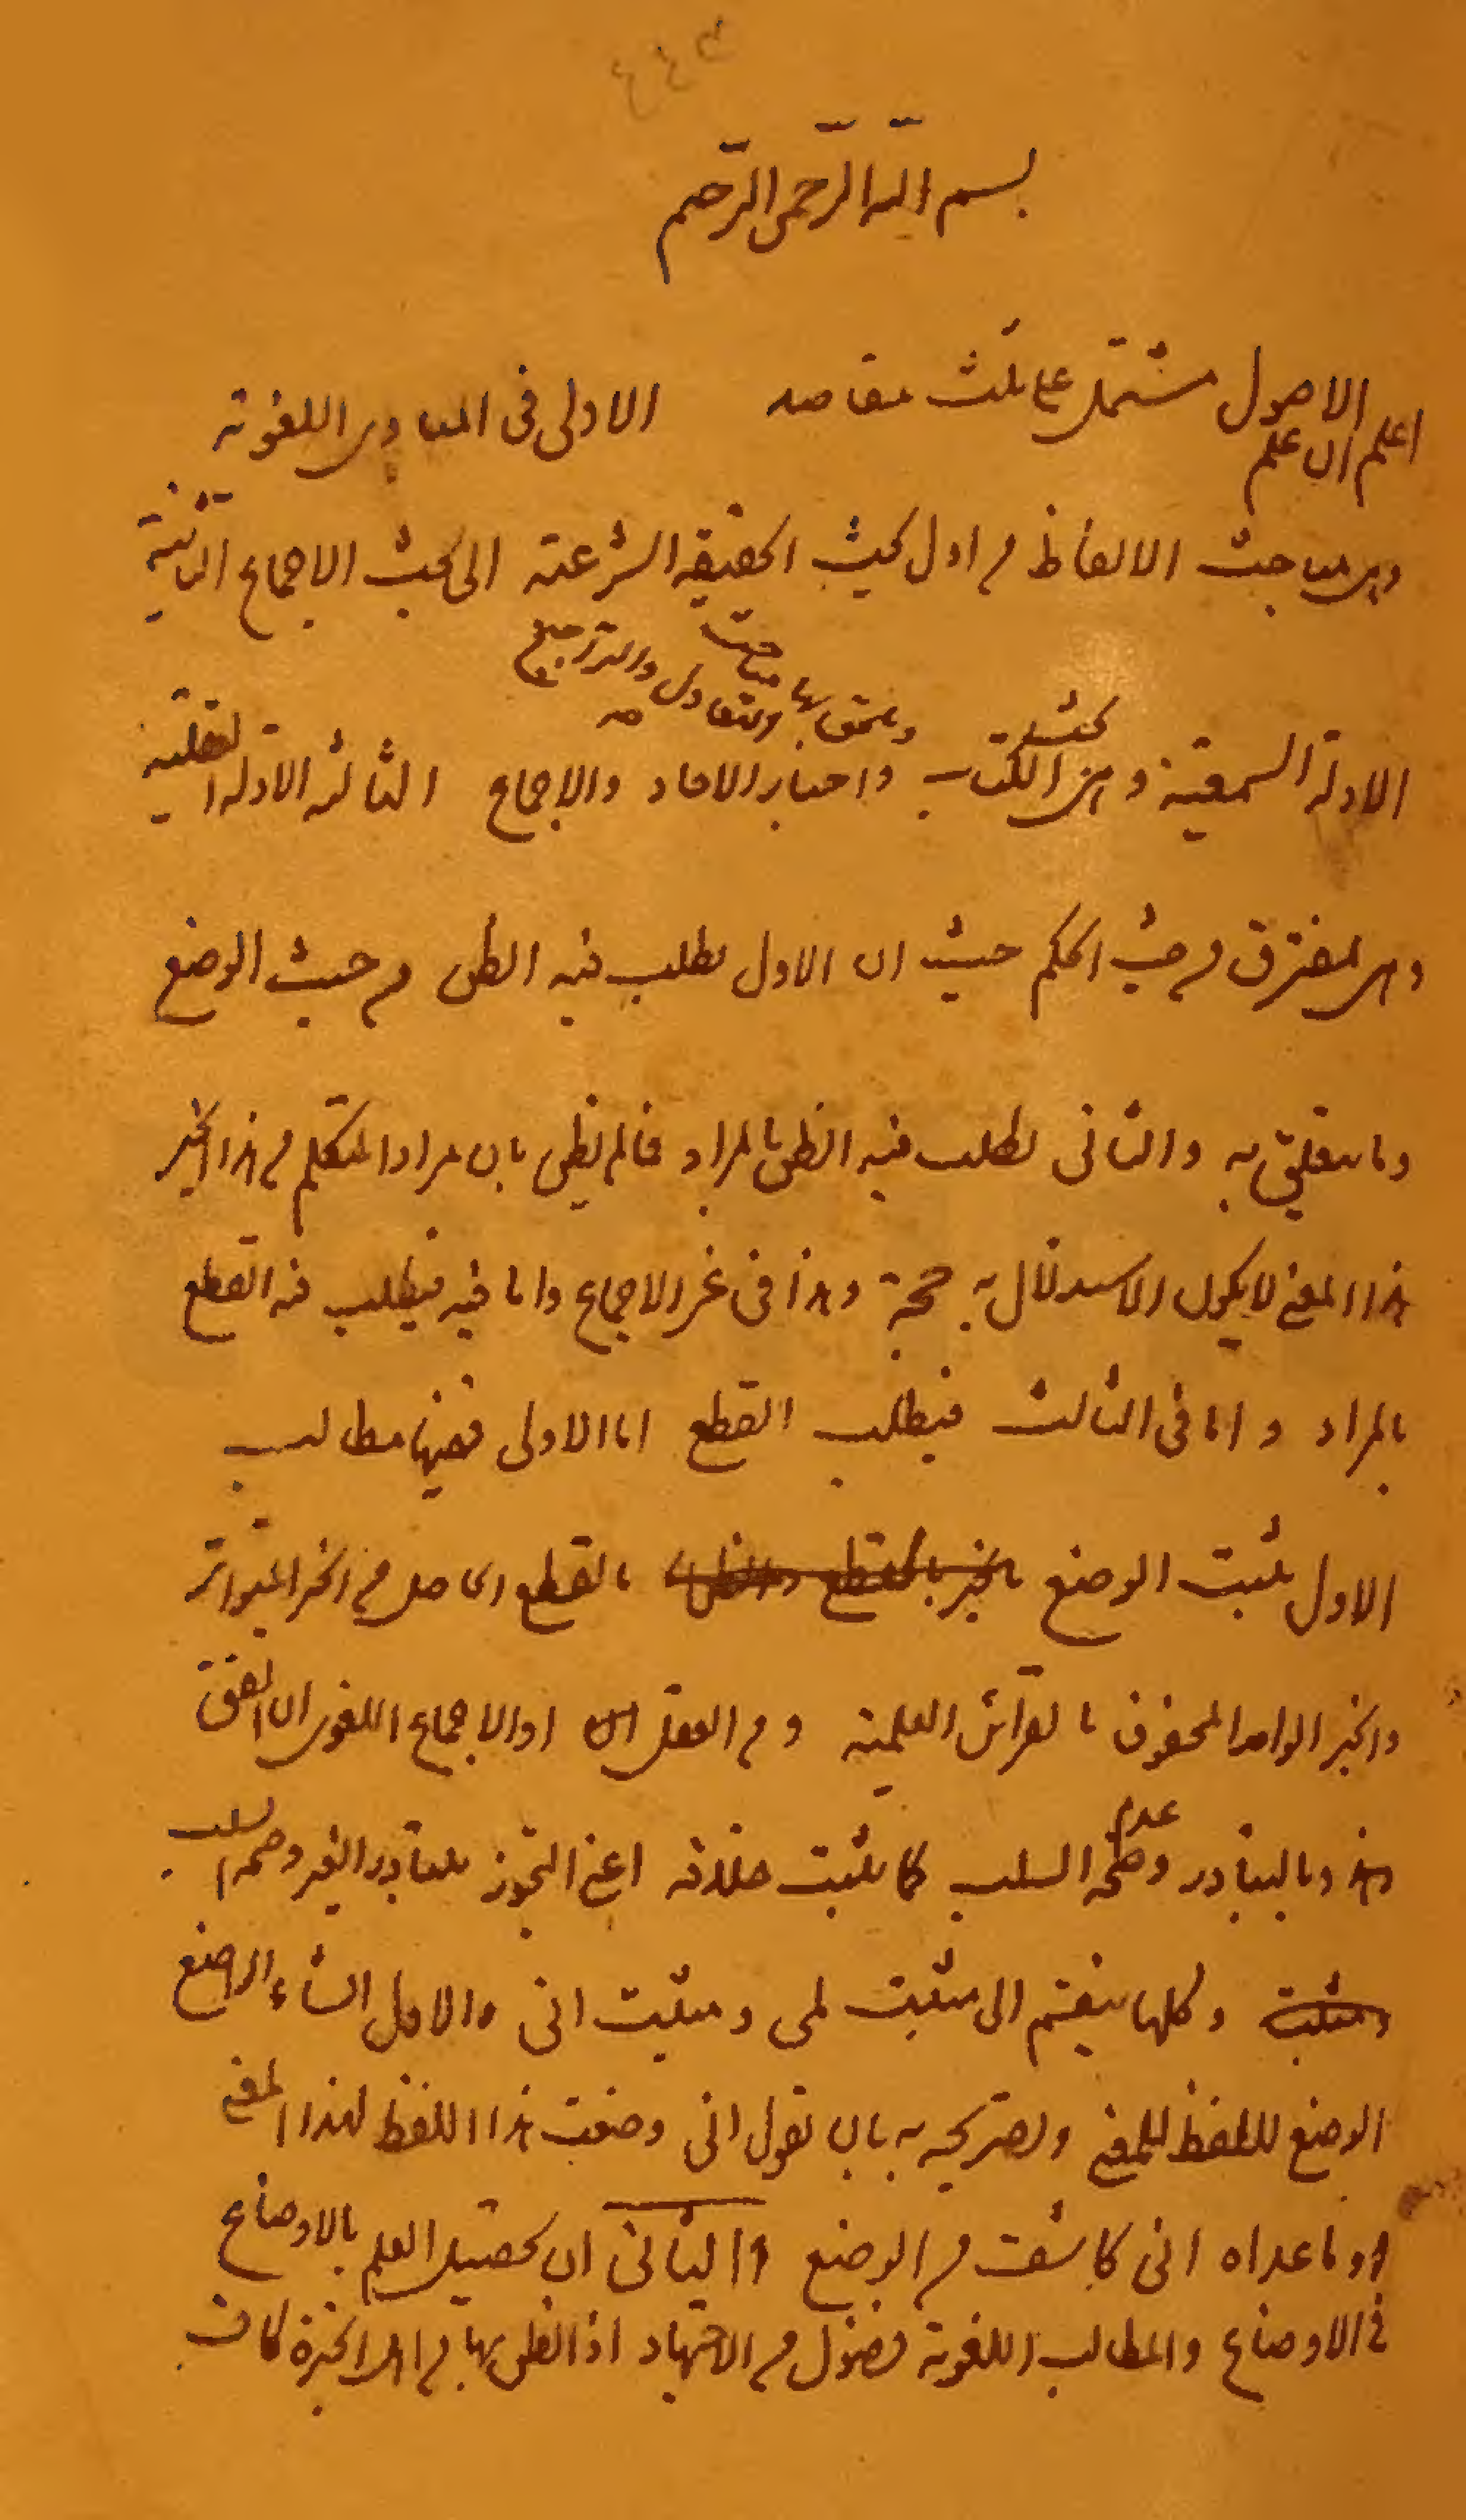 بسم الله الرحمن الرحیم
اعلم ان علم الاصول مشتمل علی ثلث مقاصد الاولی فی المبادی اللغویة
وهی مباحث الالفاظ من اول بحث الحقیقة الشرعیة الی بحث الاجماع الثانیة
الادلة السمعیة وهی بحث الکتاب واخبار الاحاد والاجماع ویلحق بها مباحث التعادل والتراجیح الثالثة الادلة العقلیة
وهی مفترق من حیث الحکم حیث ان الاول یطلب فیه الظن من حیث الوضع
وما یتعلق به والثانی یطلب فیه الظن بالمراد فما لم یظن بان مراد المتکلم من هذا الخبر
هذا المعنی لا یکون الاستدلال به حجة وهذا فی غیر الاجماع واما فیه فیطلب فیه القطع
بالمراد واما فی الثالث فیطلب القطع اما الاولی ففیها مطالب
الاول یثبت الوضع بالقطع الحاصل من الخبر المتواتر
والخبر الواحد المحفوف بالقرائن العلمیة ومن العقل او الاجماع اللغوی ان اتفق
وبالتبادر وعدم صحة السلب کما یثبت خلافه اعنی التجوز بتبادر الغیر وصحة السلب
وکلها ینقسم الی مثبت لمی ومثبت انی والاول انشاء الواضع
الوضع للفظ للمعنی وتصریحه به بان یقول انی وضعت هذا اللفظ لهذا المعنی
وما عداه انی کاشف من الوضع الثانی ان تحصیل العلم بالاوضاع
فی الاوضاع والمطالب اللغویة فضول من الاجتهاد اذ الظن بها من اهل الخبرة کاف